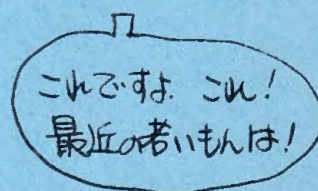 これですよ。これ!
最近の若いもんは!